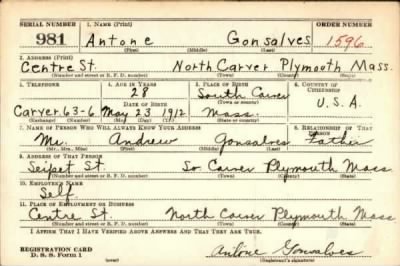 SERIAL NUMBER 1. NAME (Print) ORDER NUMBER
981 Antone Gonsalves 1596
(First) (Middle) (Last)
2. ADDRESS (Print)
Centre St. North Carver Plymouth Mass.
(Number and street or R. F. D. number) (Town) (County) (State)
3. TELEPHONE 4. AGE IN YEARS 5. PLACE OF BIRTH 6. COUNTRY OF CITIZENSHIP
28 South Carver
DATE OF BIRTH (Town or county)
U.S.A.
Carver 63-6 May 23 1912 Mass.
(Exchange) (Number) (Mo.) (Day) (Yr.) (State or country)
7. NAME OF PERSON WHO WILL ALWAYS KNOW YOUR ADDRESS 8. RELATIONSHIP OF THAT PERSON
Mr. Andrew Gonsalves Father
(Mr., Mrs., Miss) (First) (Middle) (Last)
9. ADDRESS OF THAT PERSON
St. So Carver Plymouth Mass
(Number and street or R. F. D. number) (Town) (County) (State)
10. EMPLOYER'S NAME
Self
11. PLACE OF EMPLOYMENT OR BUSINESS
Centre St. North Carver Plymouth Mass
(Number and street or R. F. D. number) (Town) (County) (State)
I AFFIRM THAT I HAVE VERIFIED ABOVE ANSWERS AND THAT THEY ARE TRUE.
REGISTRATION CARD
D. S. S. Form 1 Antone Gonsalves
(Registrant's signature)